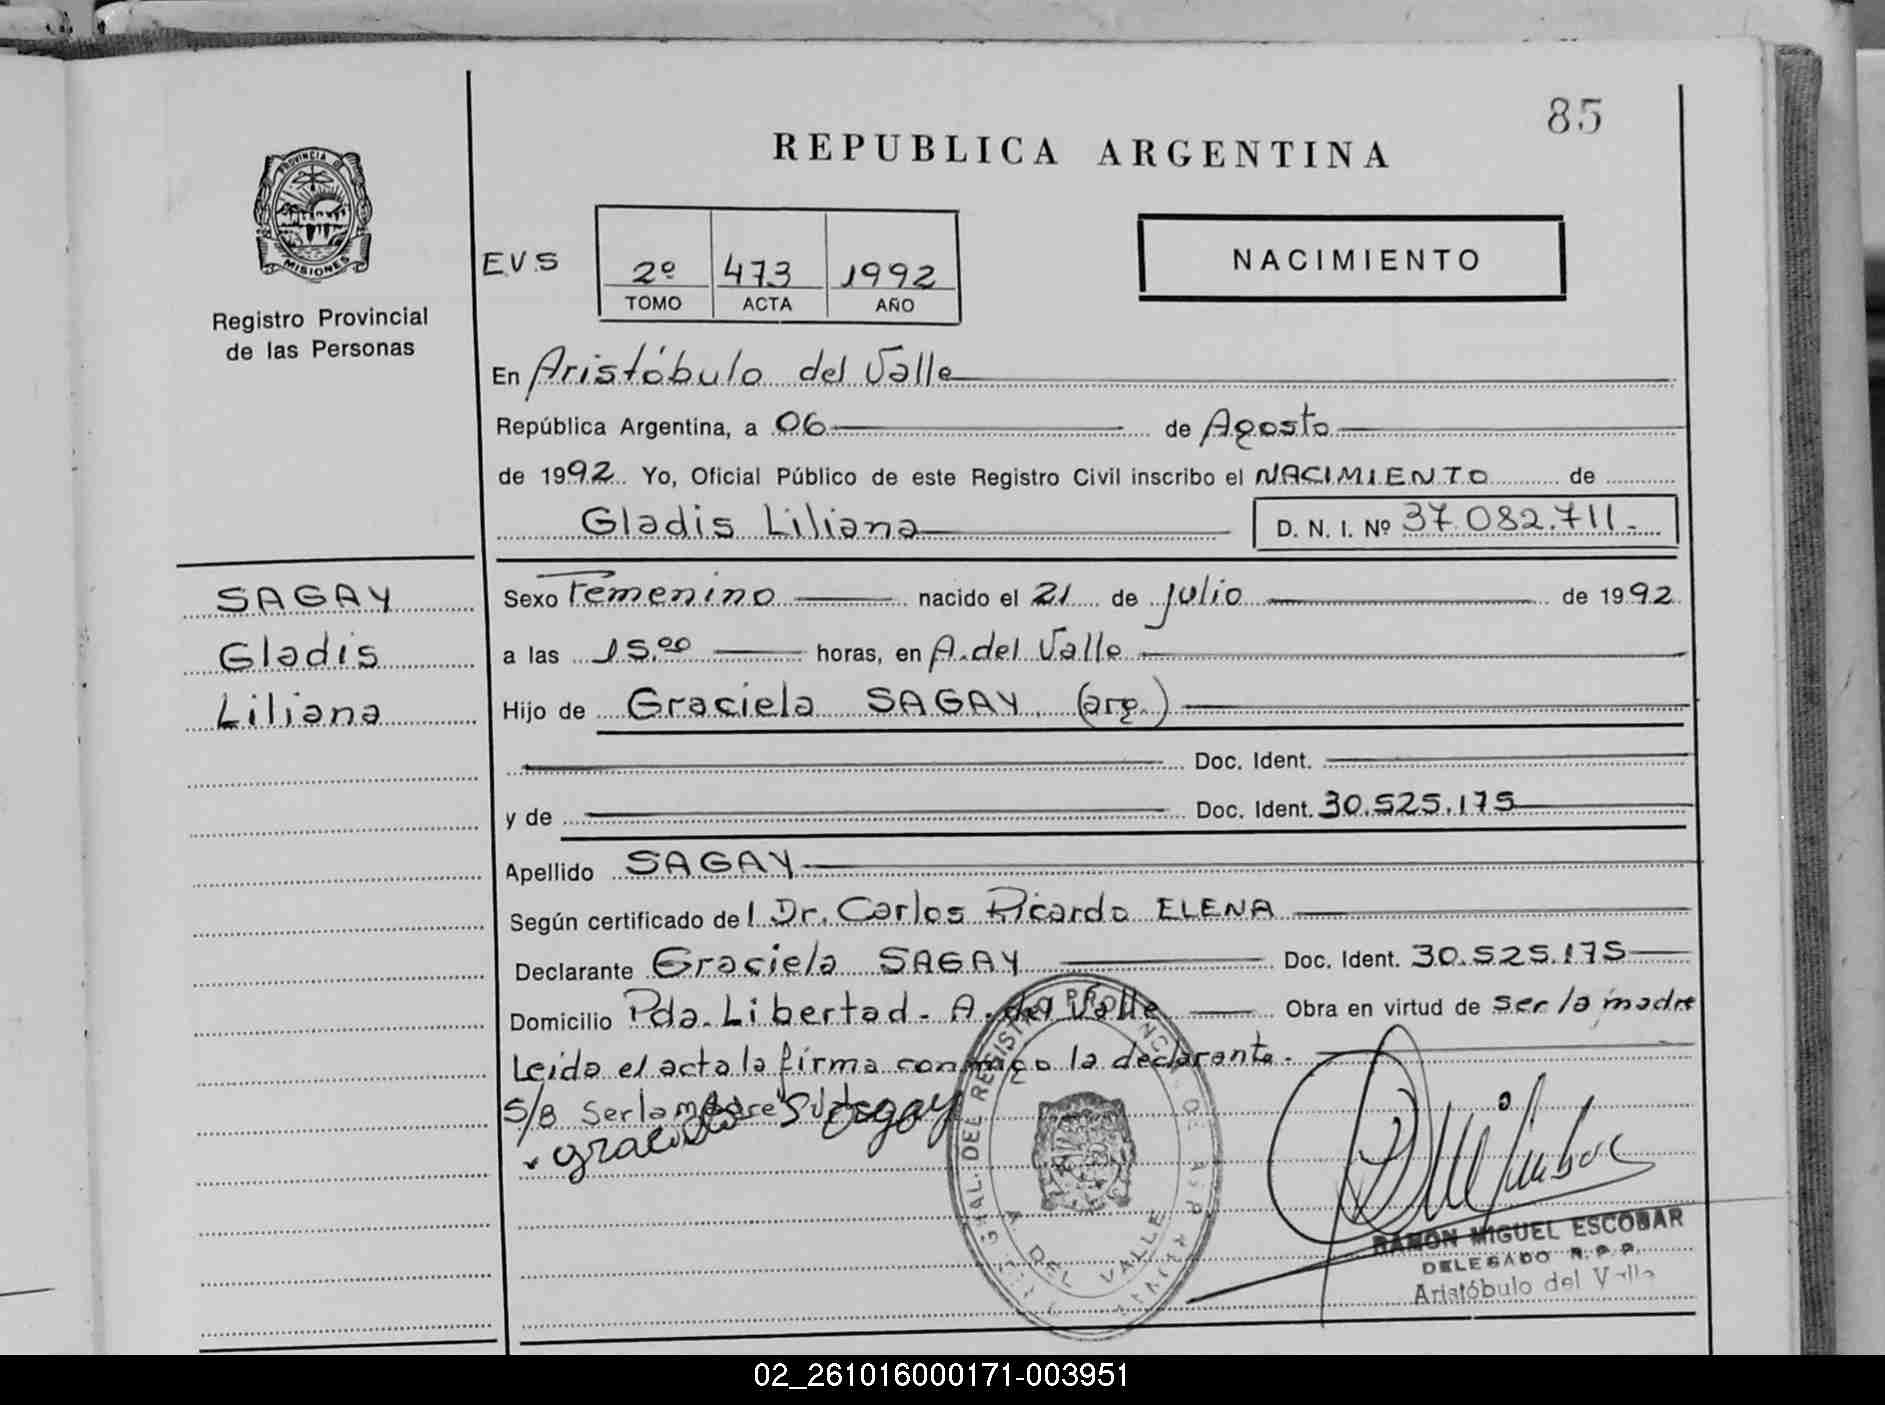 85
REPUBLICA ARGENTINA
PROVINCIA D MISIONES
Registro Provincial
de las Personas
E.V.S
2º 473 1992
TOMO ACTA AÑO
NACIMIENTO
En Aristóbulo del Valle
República Argentina, a 06 de Agosto
de 1992 Yo, Oficial Público de este Registro Civil inscribo el NACIMIENTO de
Gladis Liliana D. N. I. Nº 37.082.711.-
SAGAY
Gladis
Liliana
Sexo Femenino nacido el 21 de julio de 1992
a las 15.00 horas, en A. del Valle
Hijo de Graciela SAGAY (arg.)
Doc. Ident.
y de Doc. Ident. 30.525.175
Apellido SAGAY
Según certificado del Dr. Carlos Ricardo ELENA
Declarante Graciela SAGAY Doc. Ident. 30.525.175
Domicilio Pda. Libertad - A. del Valle Obra en virtud de ser la madre
Leida el acta la firma conmigo la declarante.-
S/B Ser la madre
graciela Sagay
DEL REGISTRO PROVINCIAL DE
A DEL VALLE
RAMON MIGUEL ESCOBAR
DELEGADO R.P.P.
Aristóbulo del Valle
02_261016000171-003951